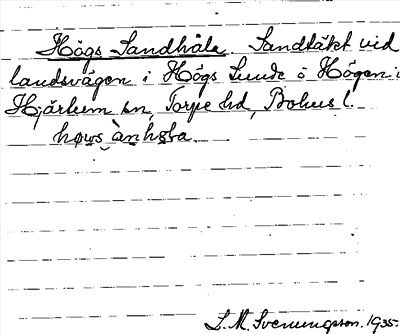 Högs Sandhåla. Sandtäkt vid
landsvägen i Högs Sunde ö Högen i
Hjärtum sn, Torpe hd, Bohus l.
høws ànhɞla
S. M. Svenungsson. 1935.